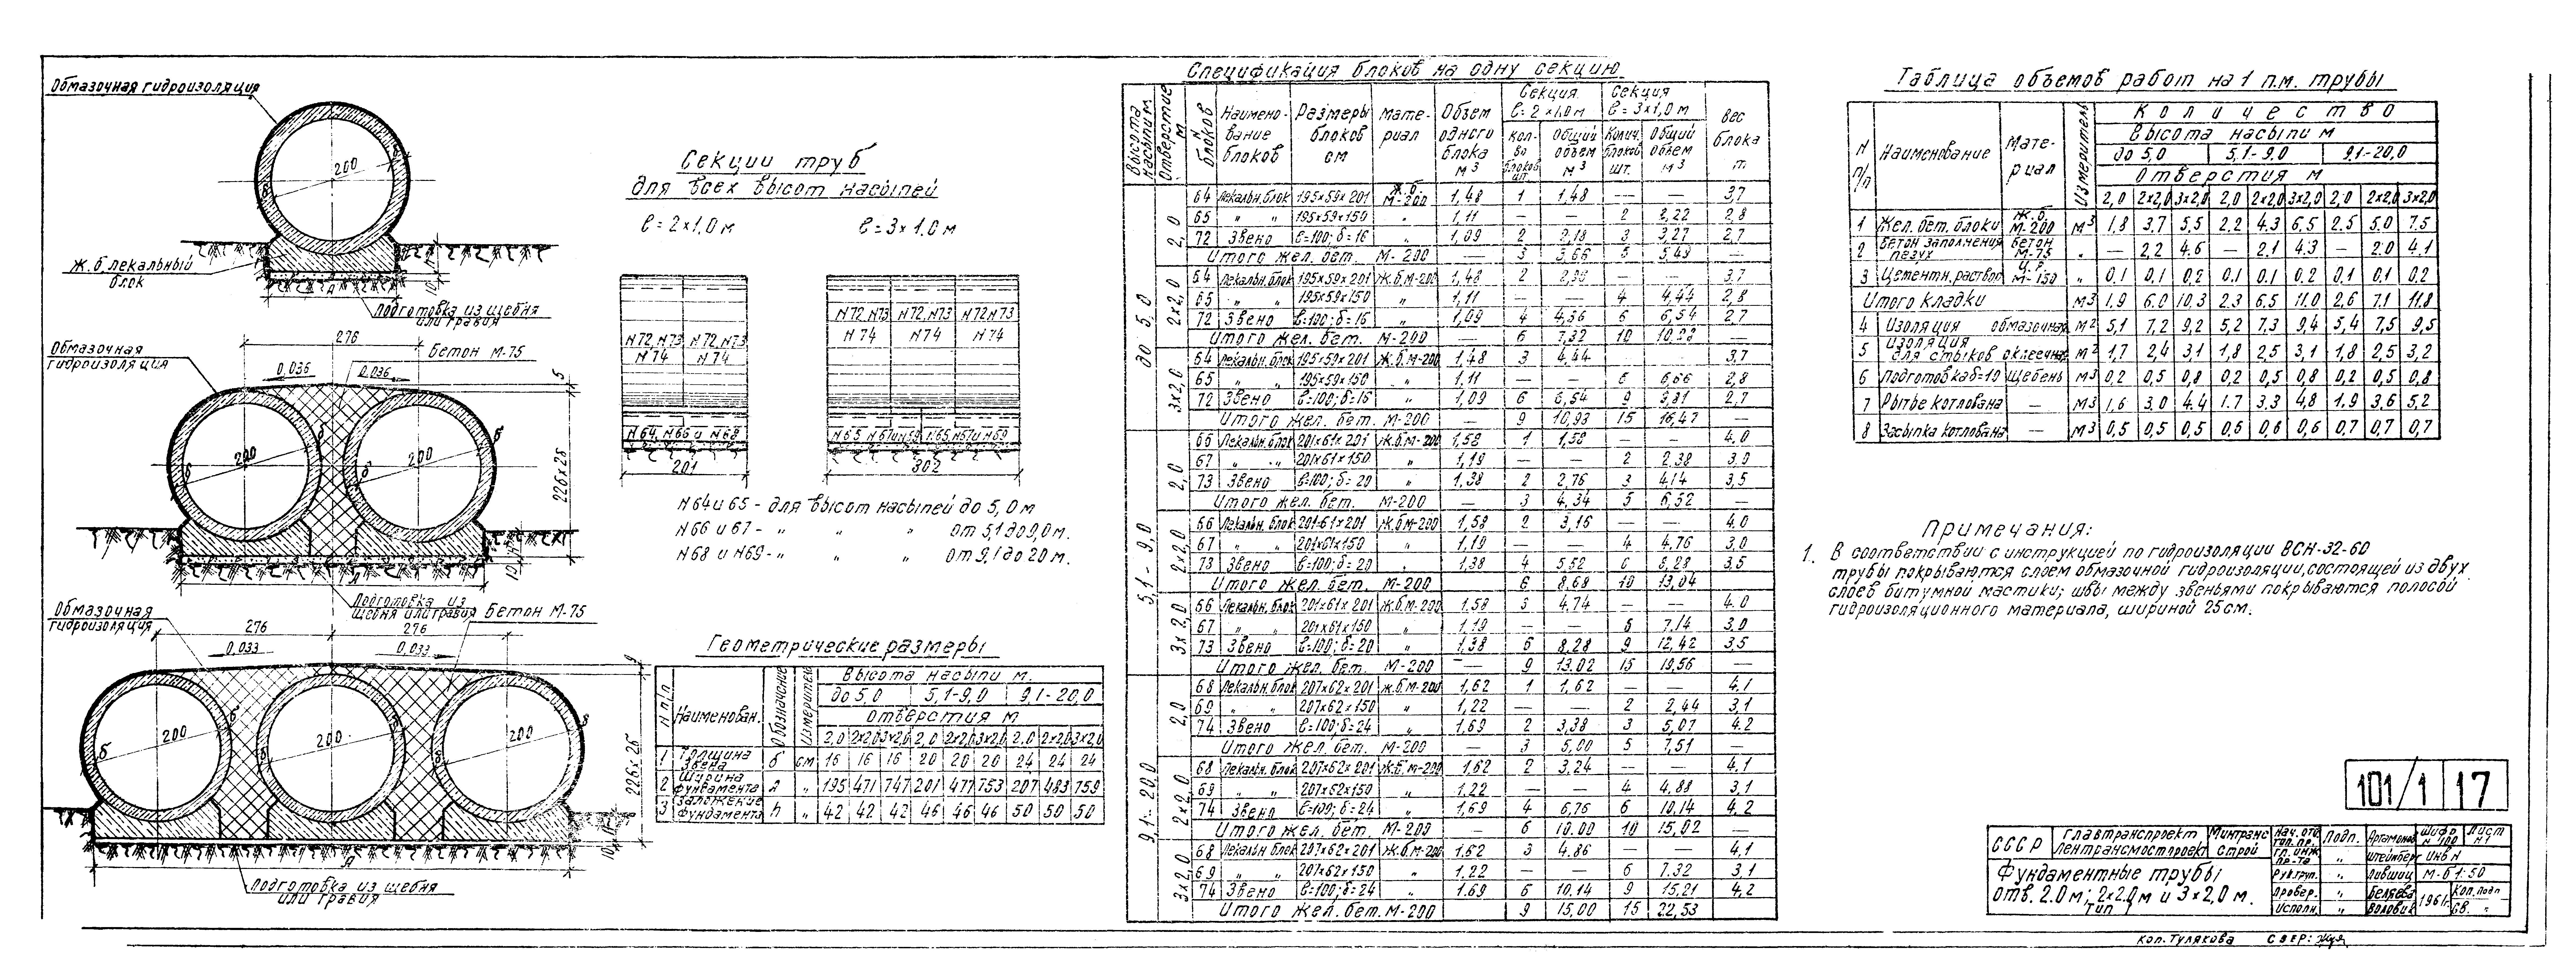 Обмазочная гидроизоляция
200
б
Ж.б лекальный
блок
Подготовка из щебня
или гравия
Обмазочная
гидроизоляция
276
Бетон М-75
0,036 0,036
5
200 200
226+2б
Подготовка из
щебня или гравия
Обмазочная
гидроизоляция
276 276
Бетон М-75
0,033 0,033
9
200 200 200
226+2б
Подготовка из щебня
или гравия
Секции труб
для всех высот насыпей
ℓ=2×1,0м ℓ=3×1,0м
N72,N73 N72,N73 N72,N73 N72,N73 N72,N73
N74 N74 N74 N74 N74
N64, N66 и N68 N65 N67 и N69 N65, N67 и N69
201 302
N64 и 65 - для высот насыпей до 5,0м
N66 и 67 - " " " от 5,1 до 9,0м.
N68 и N69 - " " " от 9,1 до 20м.
Геометрические размеры
N п/п Наименован. Обозначение Измерители Высота насыпи м.
до 5,0 5,1-9,0 9,1-20,0
отверстия м
2,0 2×2,0 3×2,0 2,0 2×2,0 3×2,0 2,0 2×2,0 3×2,0
1 Толщина звена б см 16 16 16 20 20 20 24 24 24
2 Ширина фундамента А " 195 471 747 201 477 753 207 483 759
3 Заложение фундамента h " 42 42 42 46 46 46 50 50 50
Спецификация блоков на одну секцию
Высота насыпи м. Отверстие м N блоков Наименование блоков Размеры блоков см Материал Объем одного блока м3 Секция ℓ=2×1,0м Секция ℓ=3×1,0м вес блока т
Кол-во блоков шт. Общий объем м3 Колич. блоков шт. Общий объем м3
до 5,0
2,0
64 Лекальн.блок 195×59×201 ж.б. М-200 1,48 1 1,48 — — 3,7
65 " " 195×59×150 " 1,11 — — 2 2,22 2,8
72 Звено ℓ=100; δ=16 " 1,09 2 2,18 3 3,27 2,7
Итого жел. бет. М-200 — 3 3,66 5 5,49 —
2×2,0
64 Лекальн.блок 195×59×201 Ж.б.М-200 1,48 2 2,96 — — 3,7
65 " " 195×59×150 " 1,11 — — 4 4,44 2,8
72 Звено ℓ=100; δ=16 " 1,09 4 4,36 6 6,54 2,7
Итого жел. бет. М-200 6 7,32 10 10,98
3×2,0
64 Лекальн.блок 195×59×201 Ж.б.М-200 1,48 3 4,44 3,7
65 " " 195×59×150 " 1,11 — — 6 6,66 2,8
72 Звено ℓ=100; δ=16 " 1,09 6 6,54 9 9,81 2,7
Итого жел. бет. М-200 9 10,93 15 16,47
5,1 - 9,0
2,0
66 Лекальн.блок 201×61×201 Ж.б.М-200 1,58 1 1,58 — — 4,0
67 " " 201×61×150 " 1,19 — — 2 2,38 3,0
73 Звено ℓ=100; δ=20 " 1,38 2 2,76 3 4,14 3,5
Итого жел. бет. М-200 3 4,34 5 6,52 —
2×2,0
66 Лекальн.блок 201×61×201 Ж.б.М-200 1,58 2 3,16 — — 4,0
67 " " 201×61×150 " 1,19 — — 4 4,76 3,0
73 Звено ℓ=100; δ=20 " 1,38 4 5,52 6 8,28 3,5
Итого жел. бет. М-200 6 8,68 10 13,04
3×2,0
66 Лекальн.блок 201×61×201 Ж.б.М-200 1,58 3 4,74 — — 4,0
67 " " 201×61×150 " 1,19 — — 6 7,14 3,0
73 Звено ℓ=100; δ=20 " 1,38 6 8,28 9 12,42 3,5
Итого жел. бет. М-200 — 9 13,02 15 19,56 —
9,1 - 20,0
2,0
68 Лекальн.блок 207×62×201 Ж.б.М-200 1,62 1 1,62 — — 4,1
69 " " 207×62×150 " 1,22 — — 2 2,44 3,1
74 Звено ℓ=100; δ=24 " 1,69 2 3,38 3 5,07 4,2
Итого жел. бет. М-200 — 3 5,00 5 7,51 —
2×2,0
68 Лекальн.блок 207×62×201 Ж.б.М-200 1,62 2 3,24 — — 4,1
69 " " 207×62×150 " 1,22 — — 4 4,88 3,1
74 Звено ℓ=100; δ=24 " 1,69 4 6,76 6 10,14 4,2
Итого жел. бет. М-200 — 6 10,00 10 15,02 —
3×2,0
68 Лекальн.блок 207×62×201 Ж.б.М-200 1,62 3 4,86 — — 4,1
69 " " 207×62×150 " 1,22 — — 6 7,32 3,1
74 Звено ℓ=100; δ=24 " 1,69 6 10,14 9 15,21 4,2
Итого жел. бет. М-200 9 15,00 15 22,53
Таблица объемов работ на 1 п.м. трубы
N п/п Наименование Материал Измеритель Количество
Высота насыпи м
до 5,0 5,1-9,0 9,1-20,0
Отверстия м
2,0 2×2,0 3×2,0 2,0 2×2,0 3×2,0 2,0 2×2,0 3×2,0
1 Жел. бет. блоки ж.б. М-200 м3 1,8 3,7 5,5 2,2 4,3 6,5 2,5 5,0 7,5
2 Бетон заполнения пазух бетон М-75 " — 2,2 4,6 — 2,1 4,3 — 2,0 4,1
3 Цементн. раствор ц.р. М-150 " 0,1 0,1 0,2 0,1 0,1 0,2 0,1 0,1 0,2
Итого кладки м3 1,9 6,0 10,3 2,3 6,5 11,0 2,6 7,1 11,8
4 Изоляция обмазочная м2 5,1 7,2 9,2 5,2 7,3 9,4 5,4 7,5 9,5
5 Изоляция для стыков оклеечная м2 1,7 2,4 3,1 1,8 2,5 3,1 1,8 2,5 3,2
6 Подготовка δ=10 щебень м3 0,2 0,5 0,8 0,2 0,5 0,8 0,2 0,5 0,8
7 Рытье котлована — м3 1,6 3,0 4,4 1,7 3,3 4,8 1,9 3,6 5,2
8 Засыпка котлована — м3 0,5 0,5 0,5 0,6 0,6 0,6 0,7 0,7 0,7
Примечания:
1. В соответствии с инструкцией по гидроизоляции ВСН-32-60
трубы покрываются слоем обмазочной гидроизоляции, состоящей из двух
слоев битумной мастики; швы между звеньями покрываются полосой
гидроизоляционного материала, шириной 25см.
101/1 17
СССР Главтранспроект Лентрансмостпроект Минтрансстрой
Фундаментные трубы
отв. 2.0м; 2×2.0м и 3×2,0м.
Тип I
Нач. отд. Подп. Артамонов Шифр N 100 Лист N1
Гл. инж. пр-та " Штейнберг инв N
Рук.груп. " Лившиц М-б 1:50
Провер. " Беляева 1961г. Коп. подп
Исполн. " Волович Св. "
Коп. Тулякова Свер: